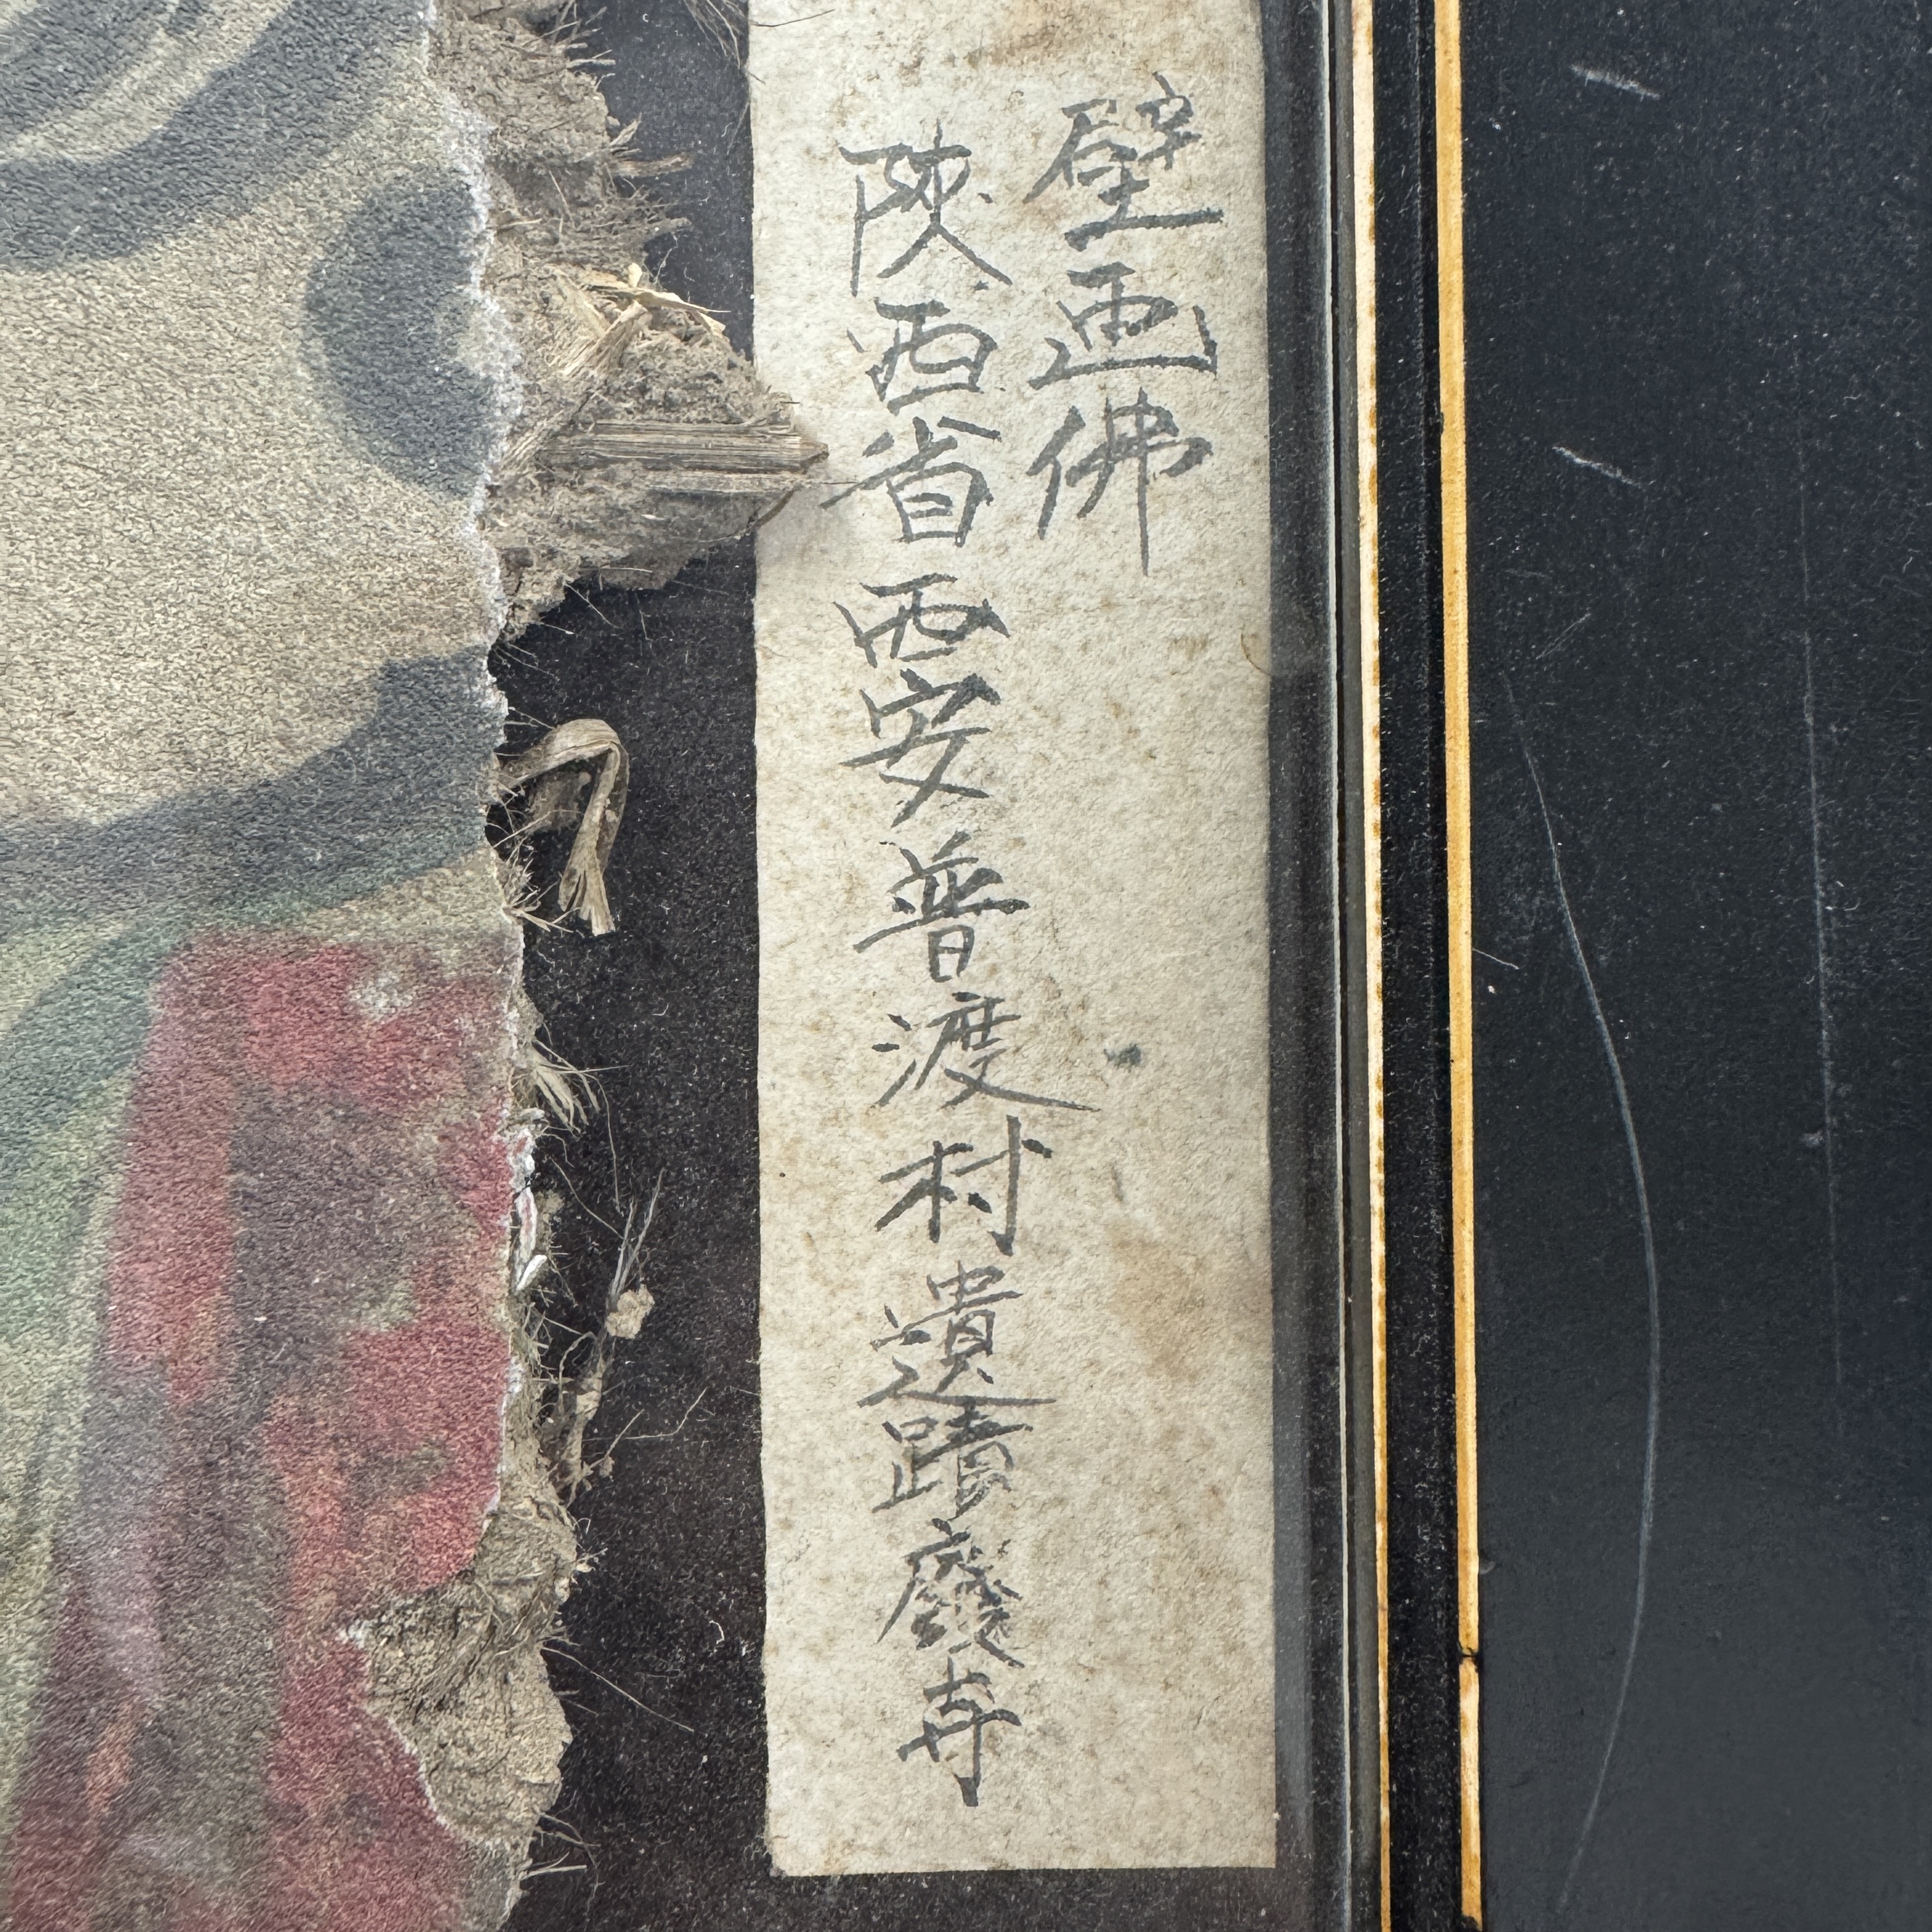 壁画佛
陝西省西安普渡村遺蹟廢寺